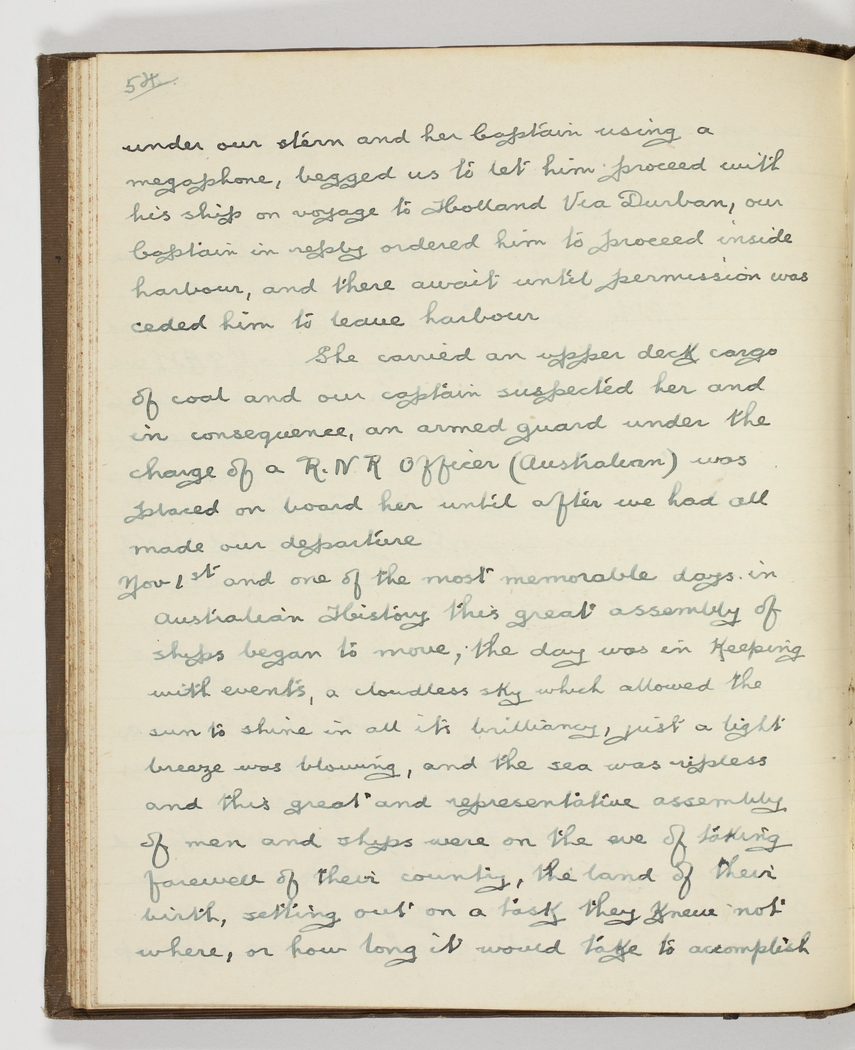 54.
under our stern and her Captain using a
megaphone, begged us to let him proceed with
his ship on voyage to Holland Via Durban, our
Captain in reply ordered him to proceed inside
harbour, and there await until permission was
ceded him to leave harbour
She carried an upper deck cargo
of coal and our captain suspected her and
in consequence, an armed guard under the
charge of a R.N R Officer (Australian) was
placed on board her until after we had all
made our departure
Nov 1st and one of the most memorable days in
Australian History this great assembly of
ships began to move, the day was in Keeping
with events, a cloudless sky which allowed the
sun to shine in all its brilliancy, just a light
breeze was blowing, and the sea was ripless
and this great and representative assembly
of men and ships were on the eve of taking
farewell of their country, the land of their
birth, setting out on a task they Knew not
where, or how long it would take to accomplish